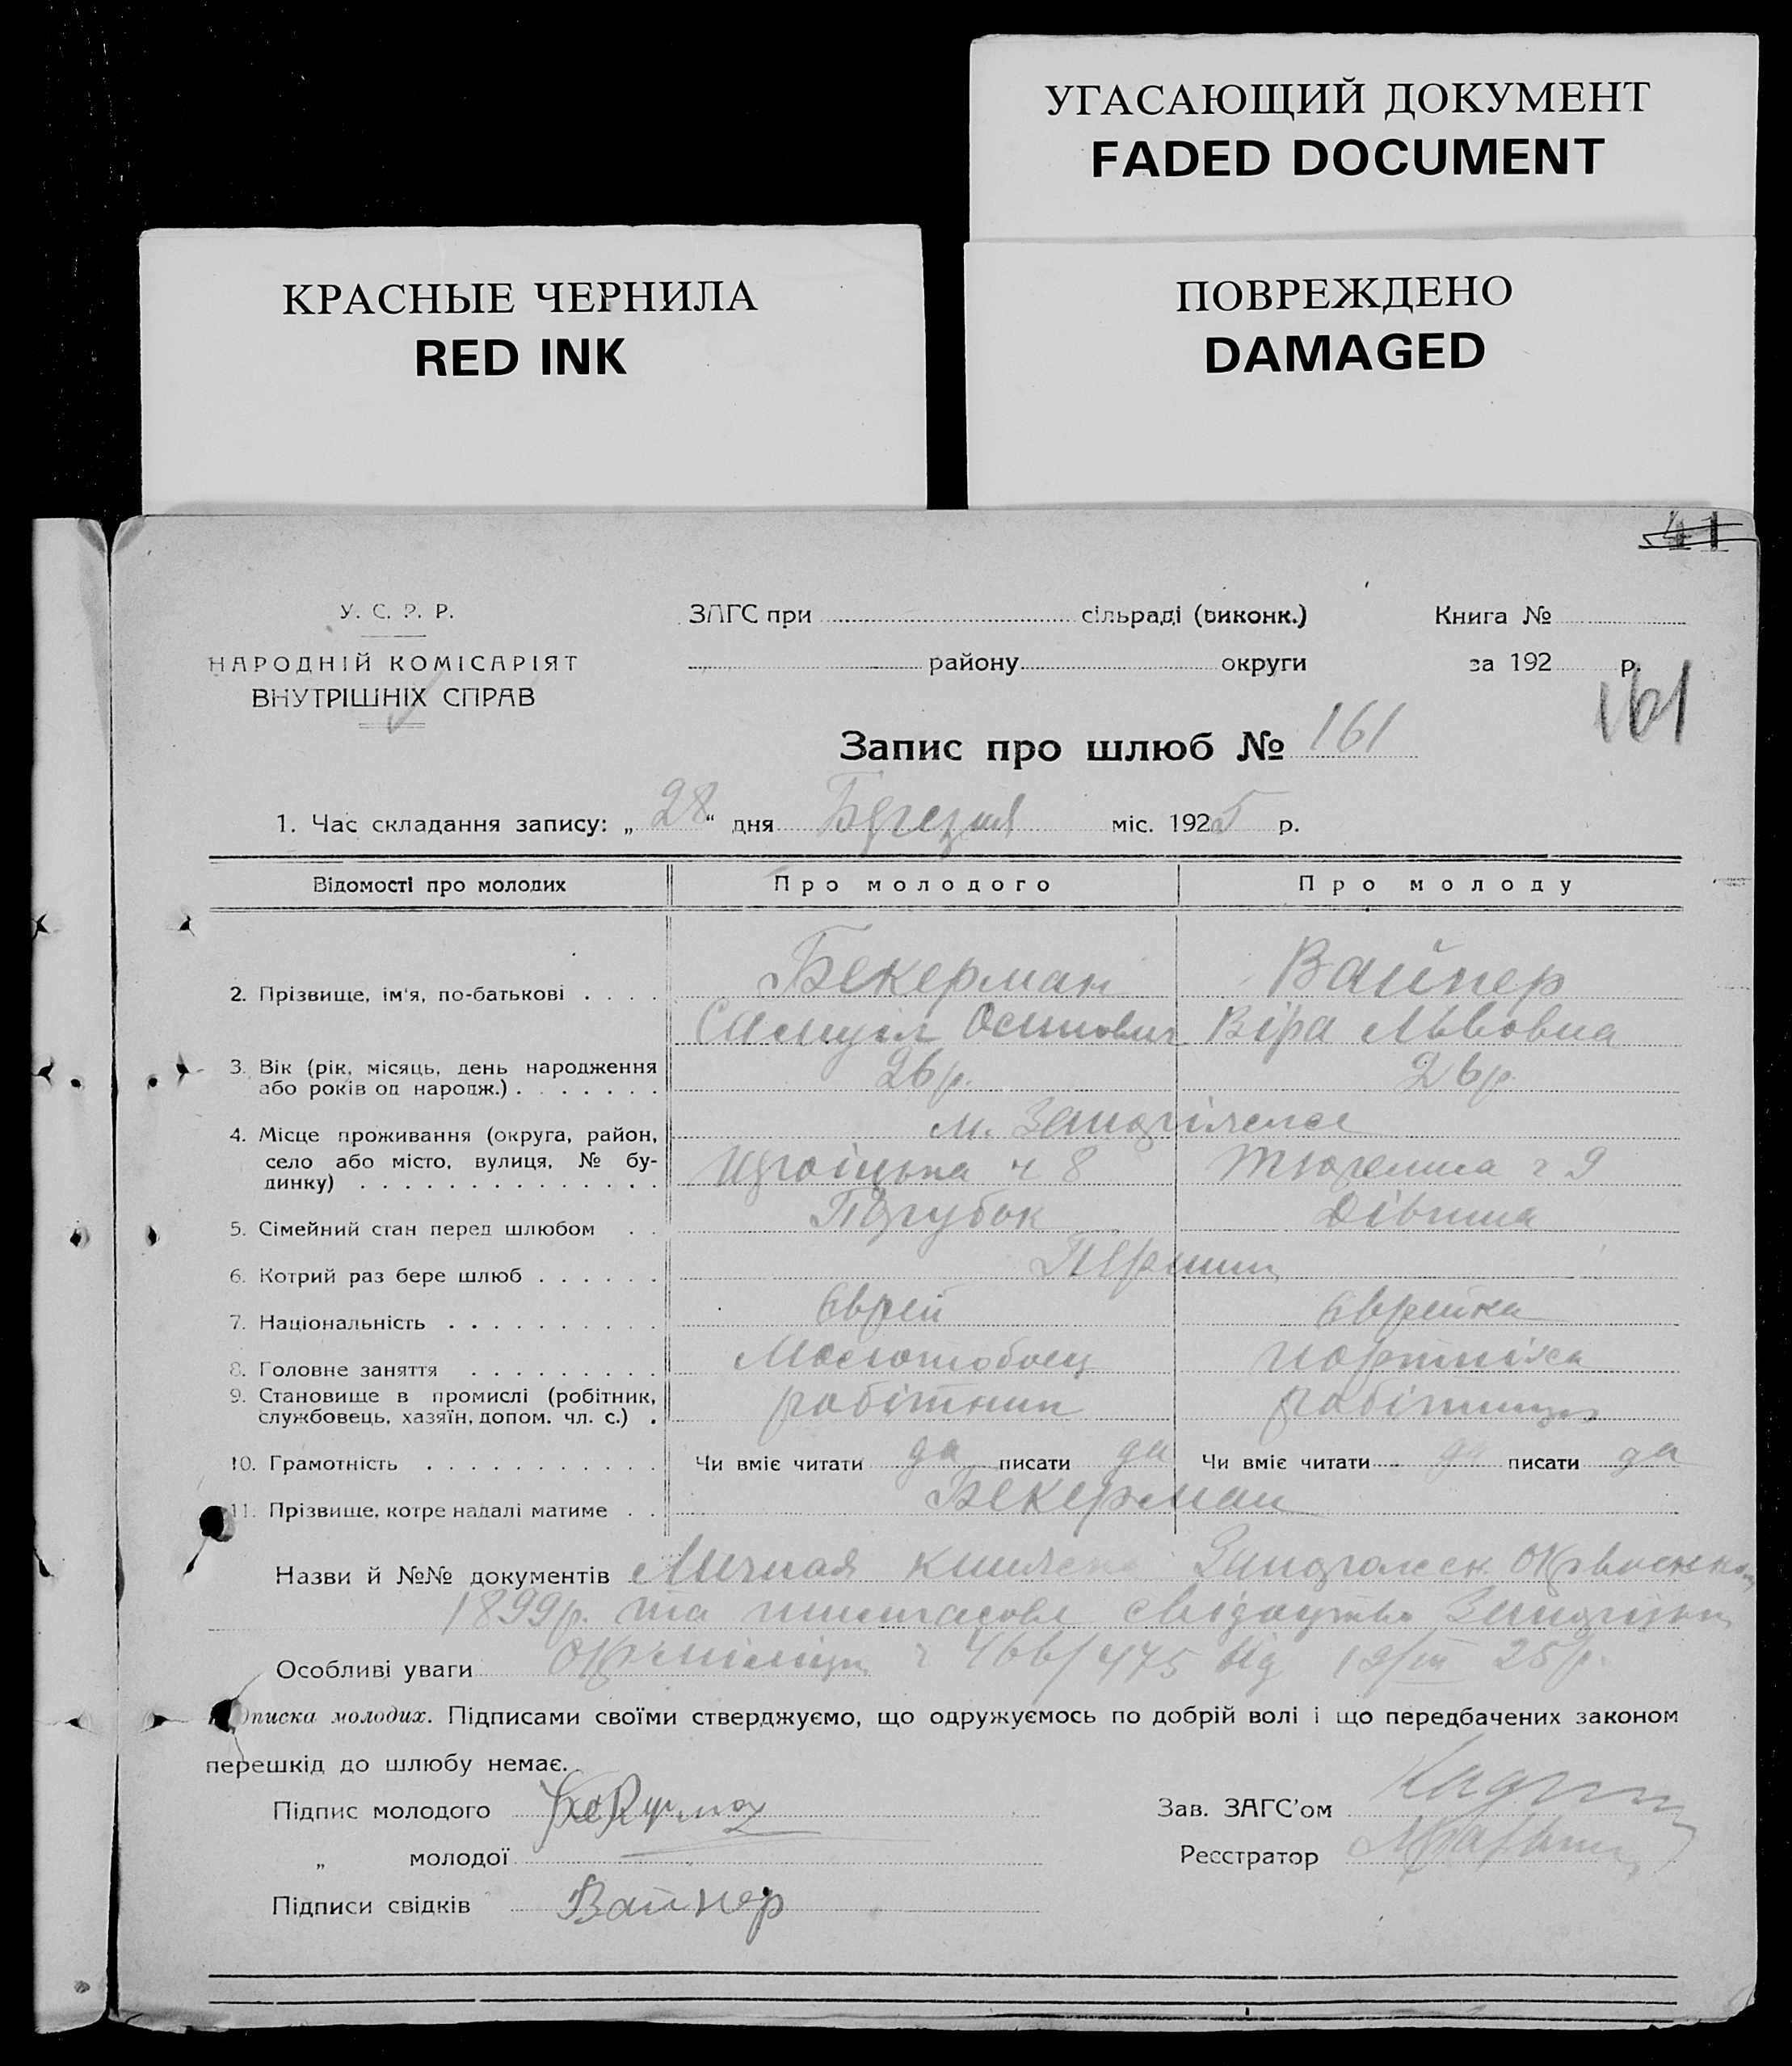 УГАСАЮЩИЙ ДОКУМЕНТ
FADED DOCUMENT
КРАСНЫЕ ЧЕРНИЛА
RED INK
ПОВРЕЖДЕНО
DAMAGED
41
У. С. Р. Р.
НАРОДНІЙ КОМІСАРІЯТ
ВНУТРІШНІХ СПРАВ
ЗАГС при сільраді (виконк.)
району округи
Книга №
за 192 р.
161
Запис про шлюб № 161
1. Час складання запису: „28“ дня Березня міс. 1925 р.
Відомості про молодих Про молодого Про молоду
2. Прізвище, ім'я, по-батькові . . . . Бекерман Вайнер
Самуіл Осипович Віра Львовна
3. Вік (рік, місяць, день народження
або років од народж.) . . . . . . . 26 р. 26 р.
4. Місце проживання (округа, район,
м.
село або місто, вулиця, № бу-
динку) . . . . . . . . . . . . . . ч 8 ч 9
5. Сімейний стан перед шлюбом . . Парубок Дівчина
6. Котрий раз бере шлюб . . . . . . Перший
7. Національність . . . . . . . . . . Єврей Єврейка
8. Головне заняття . . . . . . . . . Маслобоец
9. Становище в промислі (робітник,
службовець, хазяїн, допом. чл. с.) . робітник робітниця
10. Грамотність . . . . . . . . . . . Чи вміє читати да писати да Чи вміє читати да писати да
11. Прізвище, котре надалі матиме . . Бекерман
Назви й №№ документів Личная книжка
1899 р. та свідоцтво
Особливі уваги ч 466/475 від 25 р.
писка молодих. Підписами своїми стверджуємо, що одружуємось по добрій волі і що передбачених законом
перешкід до шлюбу немає.
Підпис молодого Бекерман
Зав. ЗАГС'ом
„ молодої
Реєстратор
Підписи свідків Вайнер